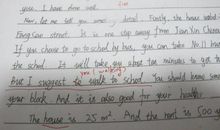 you. I have done well. fine
Now, let me tell you some detail. Firstly, the house is
FengSan street. It is one stop away from JianXin Chinese
If you choose to go to school by bus, you can take No.11 bus
the school. It will take you about ten minutes to get
But I suggest you walking to school. You should know some
your block. And it is also good for your health.
The house is 25 m². And the rent is 500 y